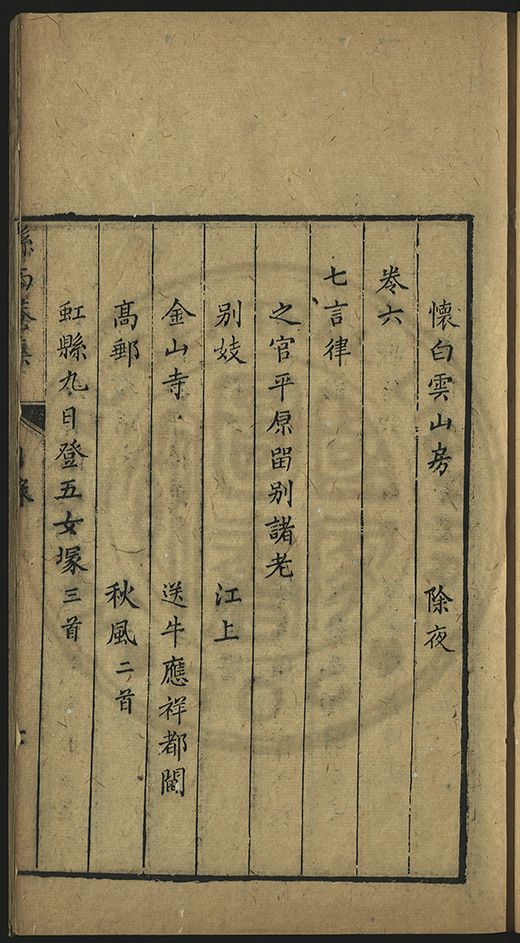 懷白雲山房　除夜
卷六
七言律
之官平原畱別諸老
別妓　江上
金山寺　送牛應祥都閫
髙郵　秋風二首
虹縣九日登五女塚三首